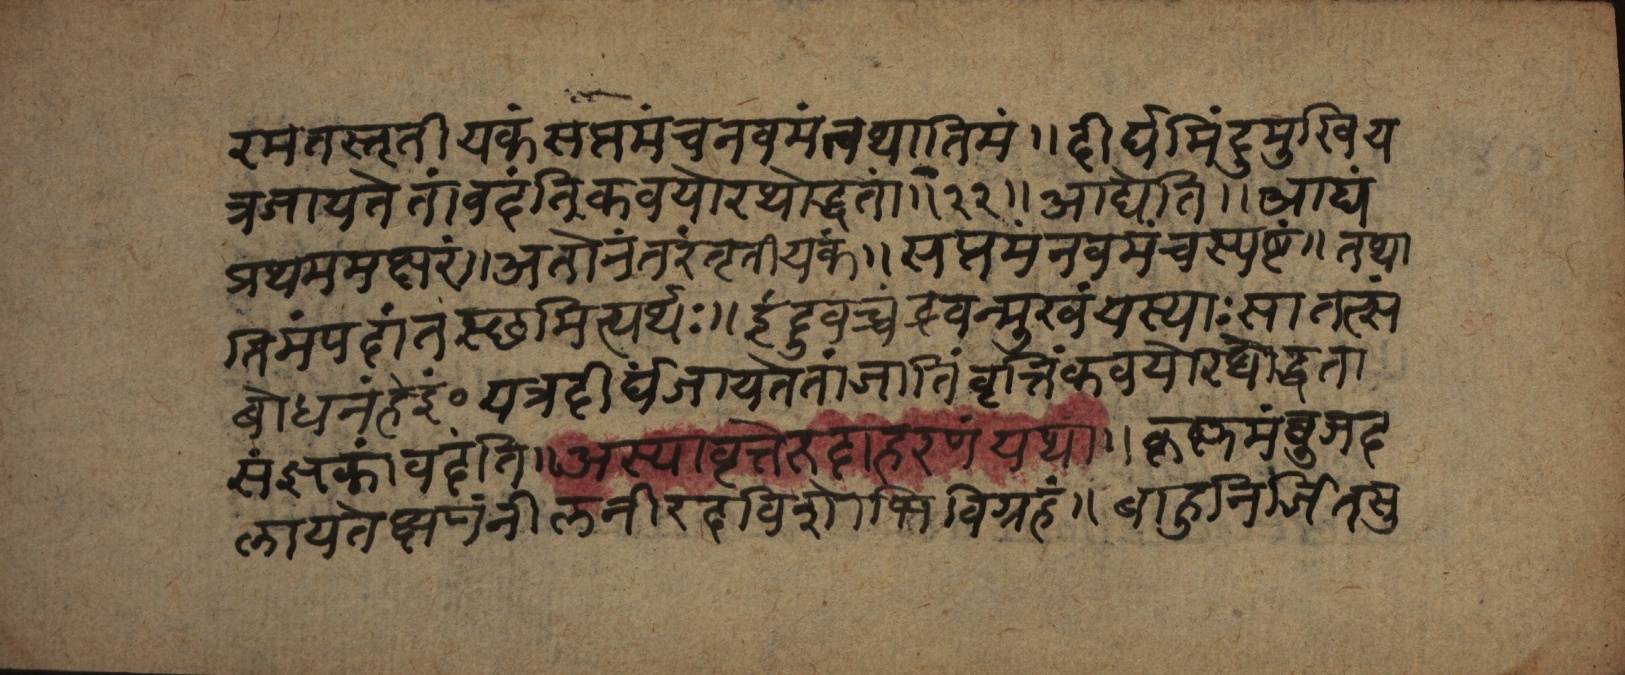 रमतस्तृतीयकं सप्तमं च नवमं तथांतिमं ॥ दीर्घमिंदुमुखि य
त्र जायते तां वदंति कवयो रथोद्धतां ॥ २२ ॥ आद्येति ॥ आद्यं
प्रथममक्षरं ॥ अतोनंतरं तृतीयकं ॥ सप्तमं नवमं च स्पष्टं ॥ तथां
तिमं पदांतस्छमित्यर्थः ॥ इंदुवच्चंद्रवन्मुखं यस्याः सा तत्सं
बोधनं हे इं॰ यत्र दीर्घं जायते तां जातिं वृत्तिं कवयो रथोद्धता
संज्ञकां वदंति ॥ अस्या वृत्तेरुदाहरणं यथा ॥ कृष्णमंबुजद
लायतेक्षणं नीलनीरदविशोभिविग्रहं ॥ बाहुनिर्जितसु